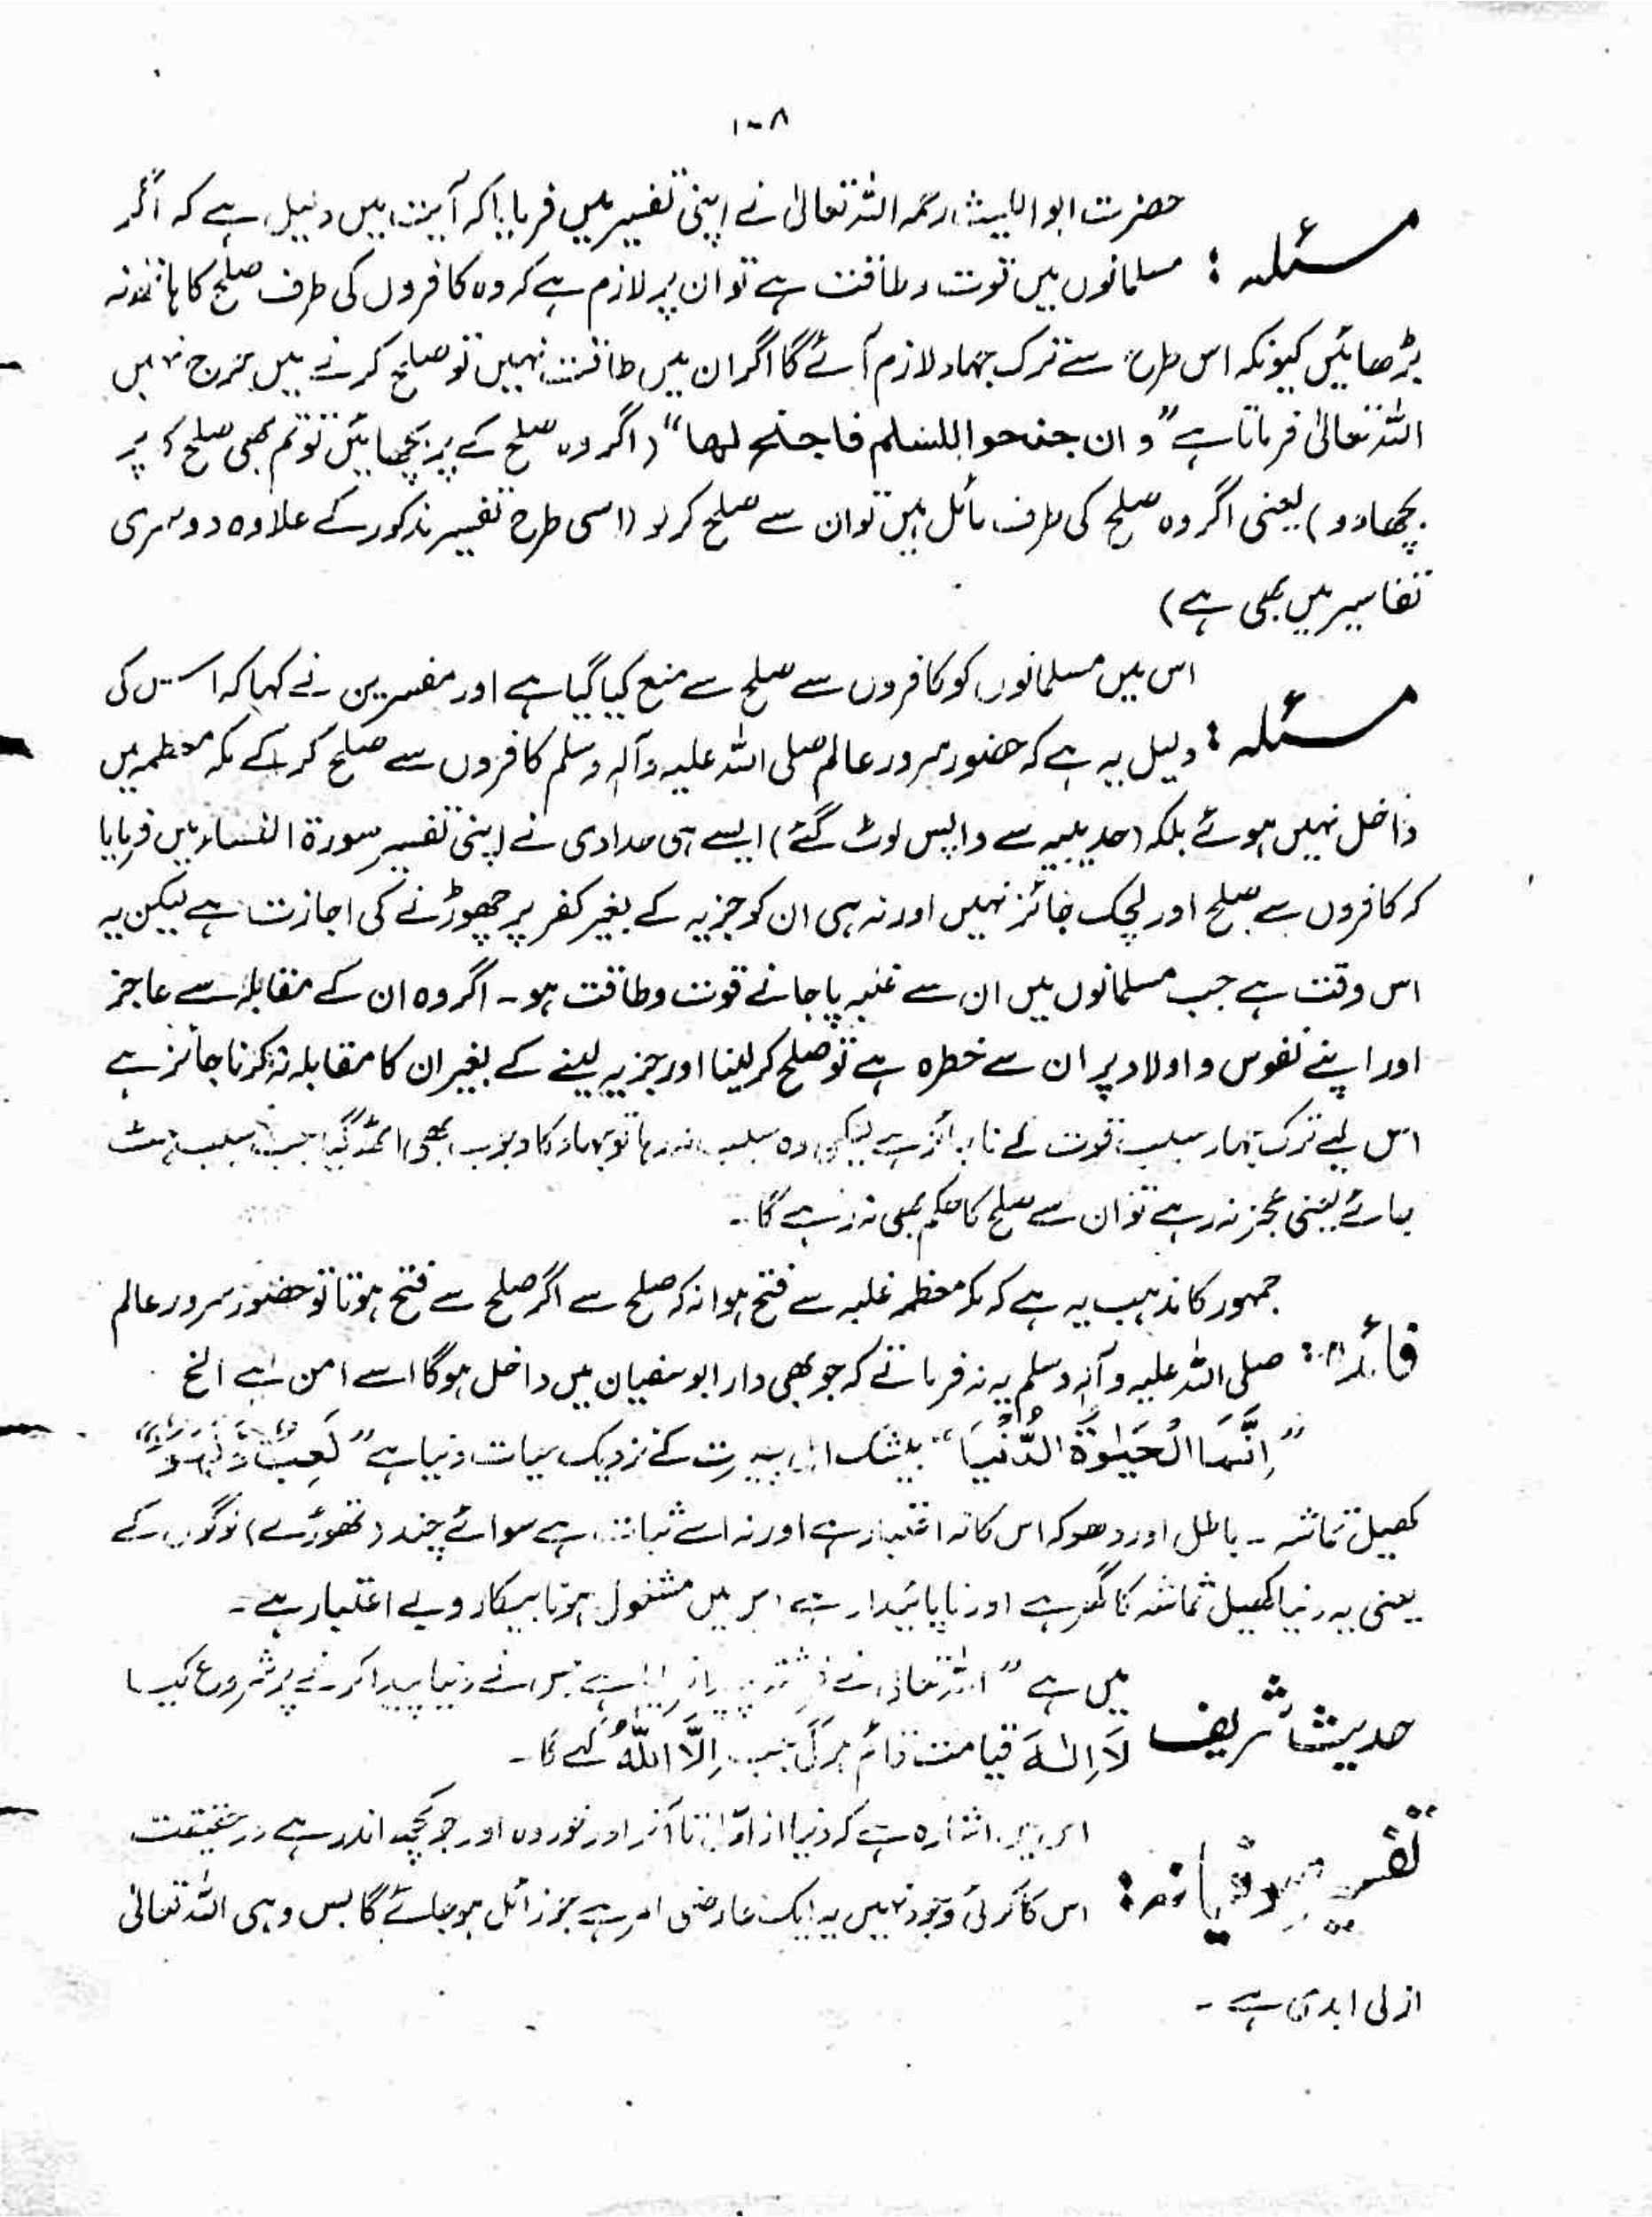 ۱۰۸
حضرت ابو اللیث رحمہ اللہ تعالیٰ نے اپنی تفسیر میں فرمایا کہ آیت میں دلیل ہے کہ اگر
مسئلہ : مسلمانوں میں قوت و طاقت ہے تو ان پر لازم ہے کہ وہ کافروں کی طرف صلح کا ہاتھ نہ
بڑھائیں کیونکہ اس طرح سے ترک جہاد لازم آئے گا اگر ان میں طاقت نہیں تو صلح کرنے میں حرج نہیں
اللہ تعالیٰ فرماتا ہے ”و ان جنحوا للسلم فاجنح لھا“ (اگر وہ صلح کے پر بچھائیں تو تم بھی صلح کے پر
بچھا دو) یعنی اگر وہ صلح کی طرف مائل ہیں تو ان سے صلح کر لو (اسی طرح تفسیر مذکور کے علاوہ دوسری
تفاسیر میں بھی ہے)
اس میں مسلمانوں کو کافروں سے صلح سے منع کیا گیا ہے اور مفسرین نے کہا کہ اس کی
مسئلہ : دلیل یہ ہے کہ حضور سرور عالم صلی اللہ علیہ وآلہ وسلم کافروں سے صلح کر کے مکہ معظمہ میں
داخل نہیں ہوئے بلکہ (حدیبیہ سے واپس لوٹ گئے) ایسے ہی حدادی نے اپنی تفسیر سورۃ النساء میں فرمایا
کہ کافروں سے صلح اور لچک جائز نہیں اور نہ ہی ان کو جزیہ کے بغیر کفر پر چھوڑنے کی اجازت ہے لیکن یہ
اس وقت ہے جب مسلمانوں میں ان سے غلبہ پا جانے قوت و طاقت ہو۔ اگر وہ ان کے مقابلہ سے عاجز
اور اپنے نفوس و اولاد پر ان سے خطرہ ہے تو صلح کر لینا اور جزیہ لینے کے بغیر ان کا مقابلہ نہ کرنا جائز ہے
اس لیے ترک جہاد بسبب قوت کے ناجائز ہے لیکن وہ سبب نہ رہا تو جہاد کا وجوب بھی اٹھ گیا جب سبب ہٹ
جائے یعنی عجز نہ رہے تو ان سے صلح کا حکم بھی نہ رہے گا۔
جمہور کا مذہب یہ ہے کہ مکہ معظمہ غلبہ سے فتح ہوا نہ کہ صلح سے اگر صلح سے فتح ہوتا تو حضور سرور عالم
فائدہ : صلی اللہ علیہ وآلہ وسلم یہ نہ فرماتے کہ جو بھی دار ابو سفیان میں داخل ہوگا اسے امن ہے الخ
”اِنَّمَا الْحَیٰوۃُ الدُّنْیَا“ بیشک اہل بصیرت کے نزدیک حیات دنیا ہے ”لَعِبٌ وَّلَھْوٌ“
کھیل تماشہ ۔ باطل اور دھوکہ اس کا نہ اعتبار ہے اور نہ اسے ثبات ہے سوائے چند (تھوڑے) لوگوں کے
یعنی یہ دنیا کھیل تماشہ کا گھر ہے اور ناپائیدار ہے اس میں مشغول ہونا بیکار و بے اعتبار ہے۔
میں ہے ”اللہ تعالیٰ نے فرشتہ پیدا فرمایا ہے جس نے دنیا پیدا کرنے پر شروع کیا
حدیث شریف لَا اِلٰہَ قیامت قائم ہوگی جب اِلَّا اللّٰہُ کہے گا۔
اس میں اشارہ ہے کہ دنیا از اول تا آخر اور خوردہ اور جو کچھ اندر ہے در حقیقت
تفسیر صوفیانہ : اس کا کوئی وجود نہیں یہ ایک عارضی امر ہے جو زائل ہو جائے گا بس وہی اللہ تعالیٰ
ازلی ابدی ہے ۔